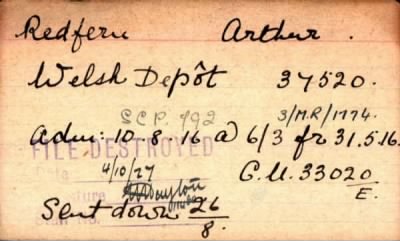 Redfern Arthur.
Welsh Depôt 37520.
S.C.P. 792 3/M.R/1774.
adm: 10.8.16 a) 6/3 fr 31.5.16.
FILE DESTROYED
Date 4/10/27 C.U. 33020/E.
Signature
Shut down 26/8.